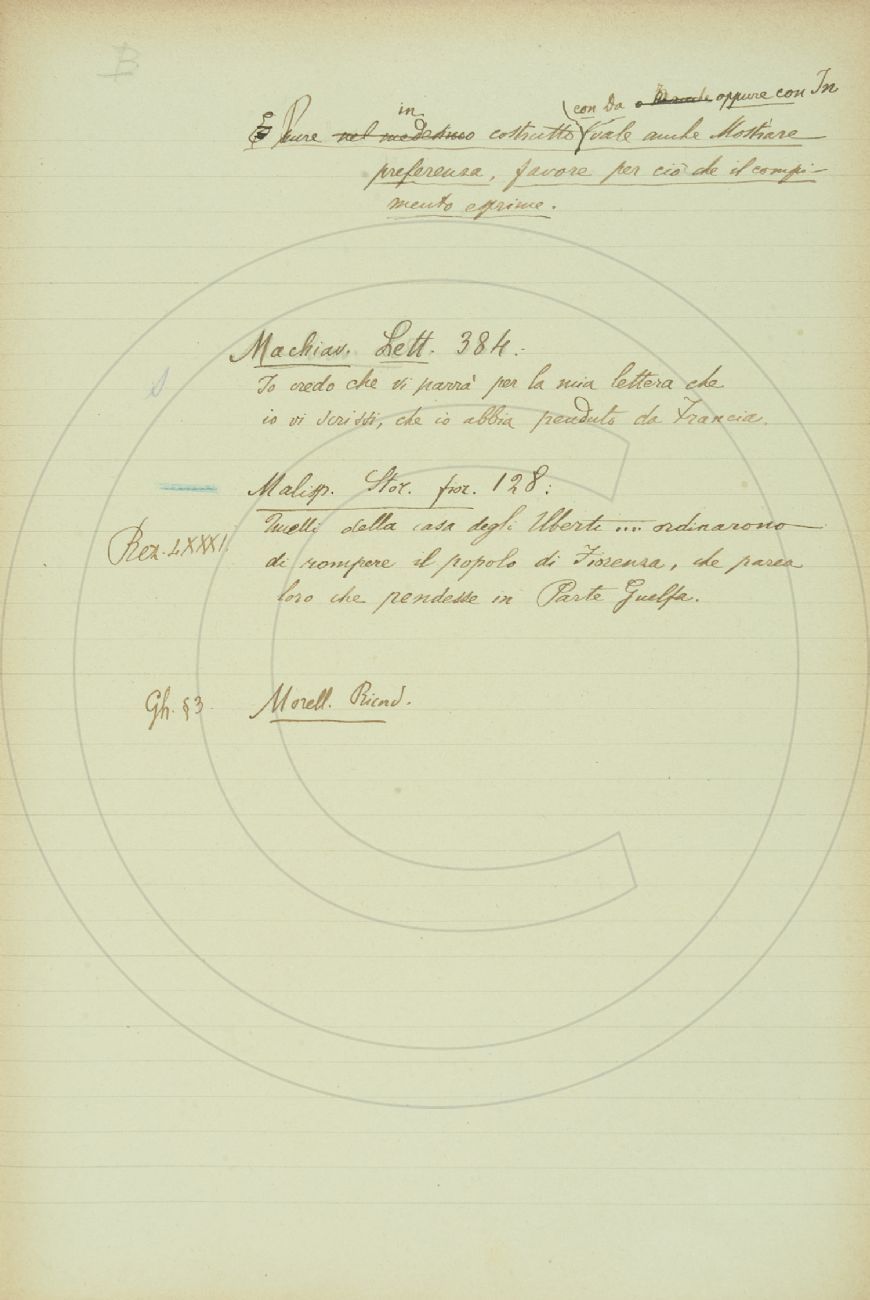 B
con Da oppure con In
in
E Pure nel medesimo costrutto vale anche Mostrare
preferenza, favore per ciò che il compi-
mento esprime.
Machiav. Lett. 384:
Io credo che vi parrà per la mia lettera che
io vi scrissi, che io abbia penduto da Francia.
Malisp. Stor. fior. 128:
Quelli della casa degli Uberti .... ordinarono
Rez. LXXXI.
di rompere il popolo di Fiorenza, che parea
loro che pendesse in Parte Guelfa.
Gh. § 3. Morell. Ricord.